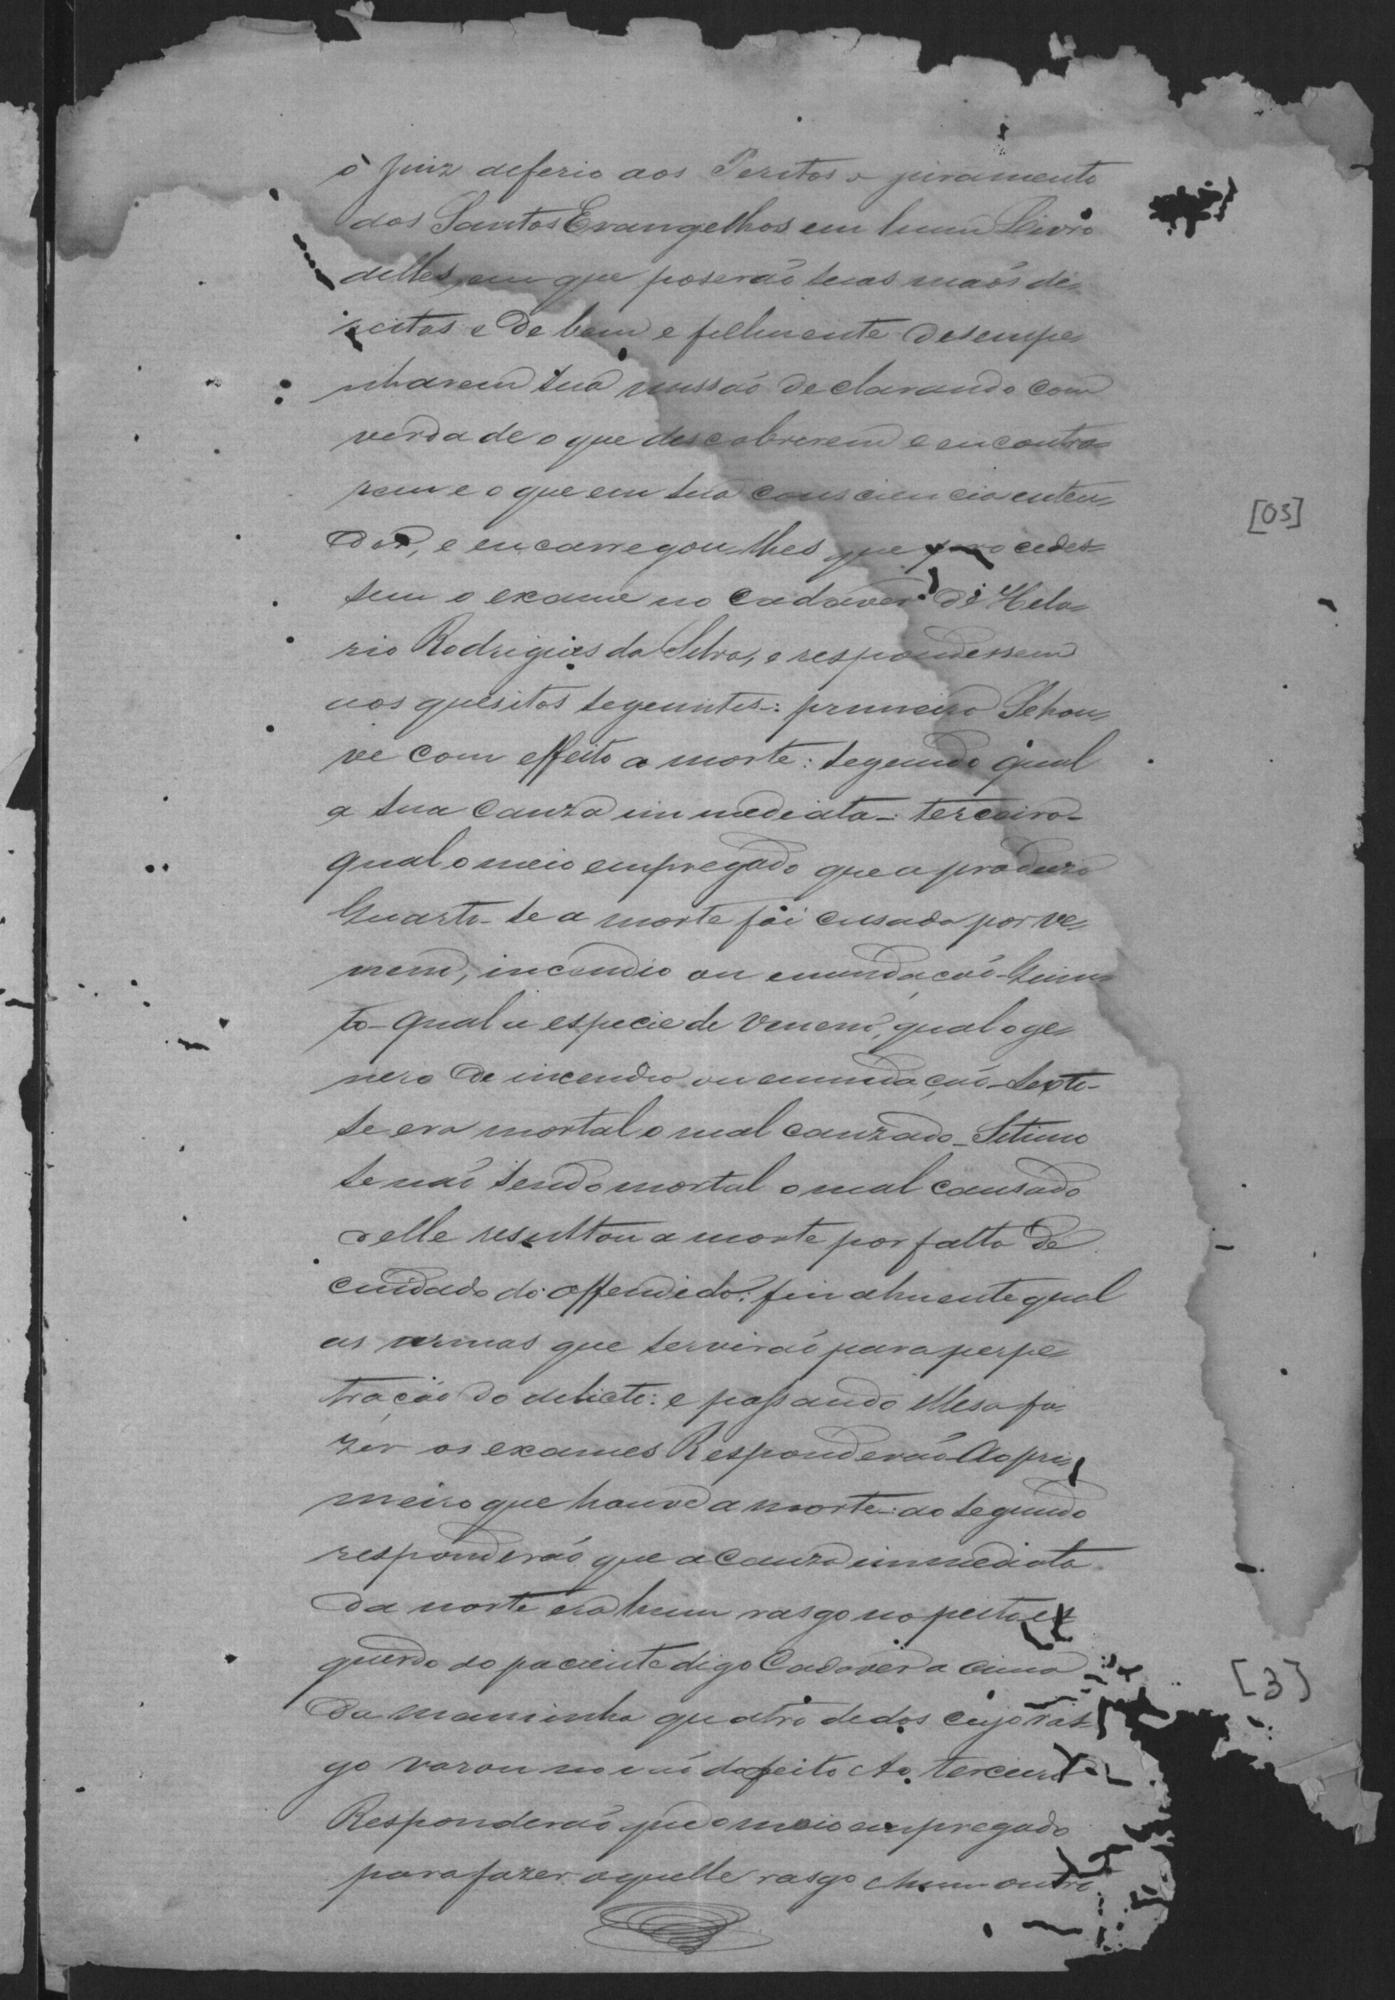 o Juiz deferio aos Peritos o juramento
dos Santos Evangelhos em hum Livro
delles, em que poserão suas mãos di-
reitas e de bem e fielmente desempe-
nharem sua missão declarando com
verdade o que descobrirem e encontra-
rem e o que em sua consciencia enten-
der, e encarregou-lhes que procedes-
sem o exame no cadaver de Hela-
rio Rodrigues da Silva, e respondessem
aos quesitos seguintes: primeiro Se hou-
ve com effeito a morte: segundo qual
a sua cauza immediata: terceiro-
qual o meio empregado que a produzio
Quarto- se a morte foi cusada por ve-
neno, incendio ou enundação- Quin-
to- qual a especie de veneno, qual o ge-
nero de incendio ou enundação- Sexto-
se era mortal o mal cauzado- Setimo
se não sendo mortal o mal causado
delle resultou a morte por falta de
cuidado do offendido: finalmente qual
as armas que servirão para perpe-
tração do delicto: e passando Mesa fa-
zer os exames Responderão Ao pri-
meiro que houve a morte: ao segundo
responderão que a cauza immediata
da morte era hum rasgo no peito es-
querdo do paciente digo Cadaver a cima
da maminha quatro dedos cujo ras-
go varou no vão do peito Ao terceiro
Responderão que o meio empregado
para fazer aquelle rasgo hum outro
[03]
[3]